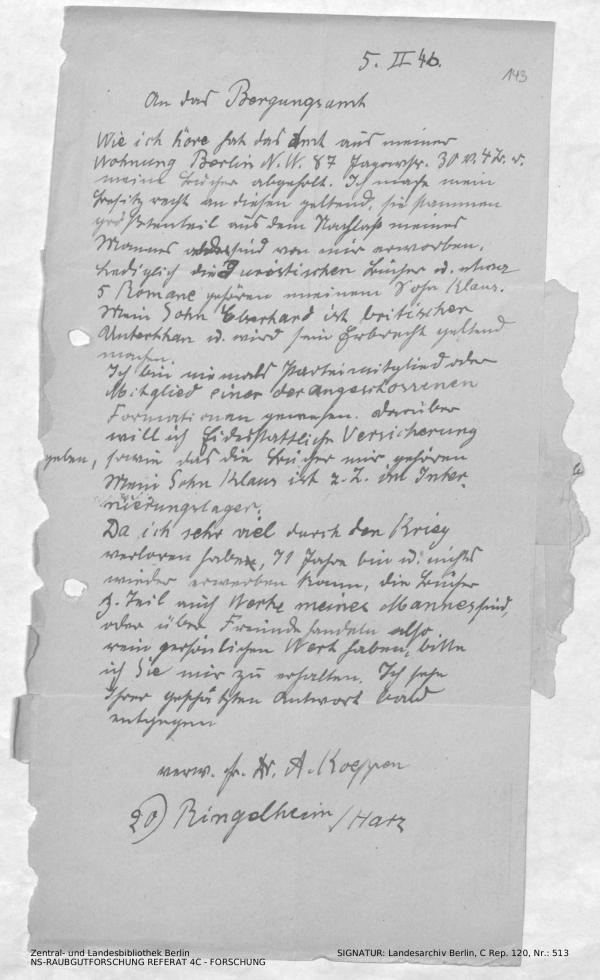 5. II 46.
143
An das Bergungsamt
Wie ich höre hat das Amt aus meiner
Wohnung Berlin N.W. 87 Jagowstr. 30 v. 4 Tr. r.
meine Bücher abgeholt. Ich mache mein
Besitzrecht an diesen geltend, sie stammen
grösstenteil aus dem Nachlaß meines
Mannes oder sind von mir erworben.
Lediglich die Juristischen Bücher u. etwa
5 Romane gehören meinem Sohn Klaus.
Mein Sohn Eberhard ist britischer
Unterthan u. wird sein Erbrecht geltend
machen.
Ich bin niemals Parteimitglied oder
Mitglied einer der angeschossenen
Formationen gewesen. Darüber
will ich Eidesstattliche Versicherung
geben, sowie das die Bücher mir gehören
Mein Sohn Klaus ist z. Z. im Inter-
nierungslager.
Da ich sehr viel durch den Krieg
verloren habe, 71 Jahre bin u. nichts
wieder erwerben kann, die Bücher
z. Teil auch Werke meines Mannes sind,
oder über Freunde handeln also
rein persönlichen Wert haben, bitte
ich Sie mir zu erhalten. Ich sehe
Ihrer geschätzten Antwort bald
entgegen
verw. Fr. Dr. A. Koeppen
20) Ringelheim / Harz
Zentral- und Landesbibliothek Berlin
NS-RAUBGUTFORSCHUNG REFERAT 4C - FORSCHUNG
SIGNATUR: Landesarchiv Berlin, C Rep. 120, Nr.: 513